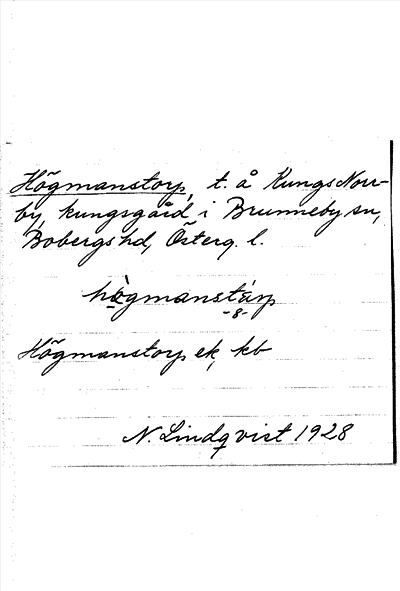 Högmanstorp, t. å Kungs Norr-
by, kungsgård i Brunneby sn,
Bobergs hd, Österg. l.
hògmanstárp
-8-
Högmanstorp ek, kb
N. Lindqvist 1928